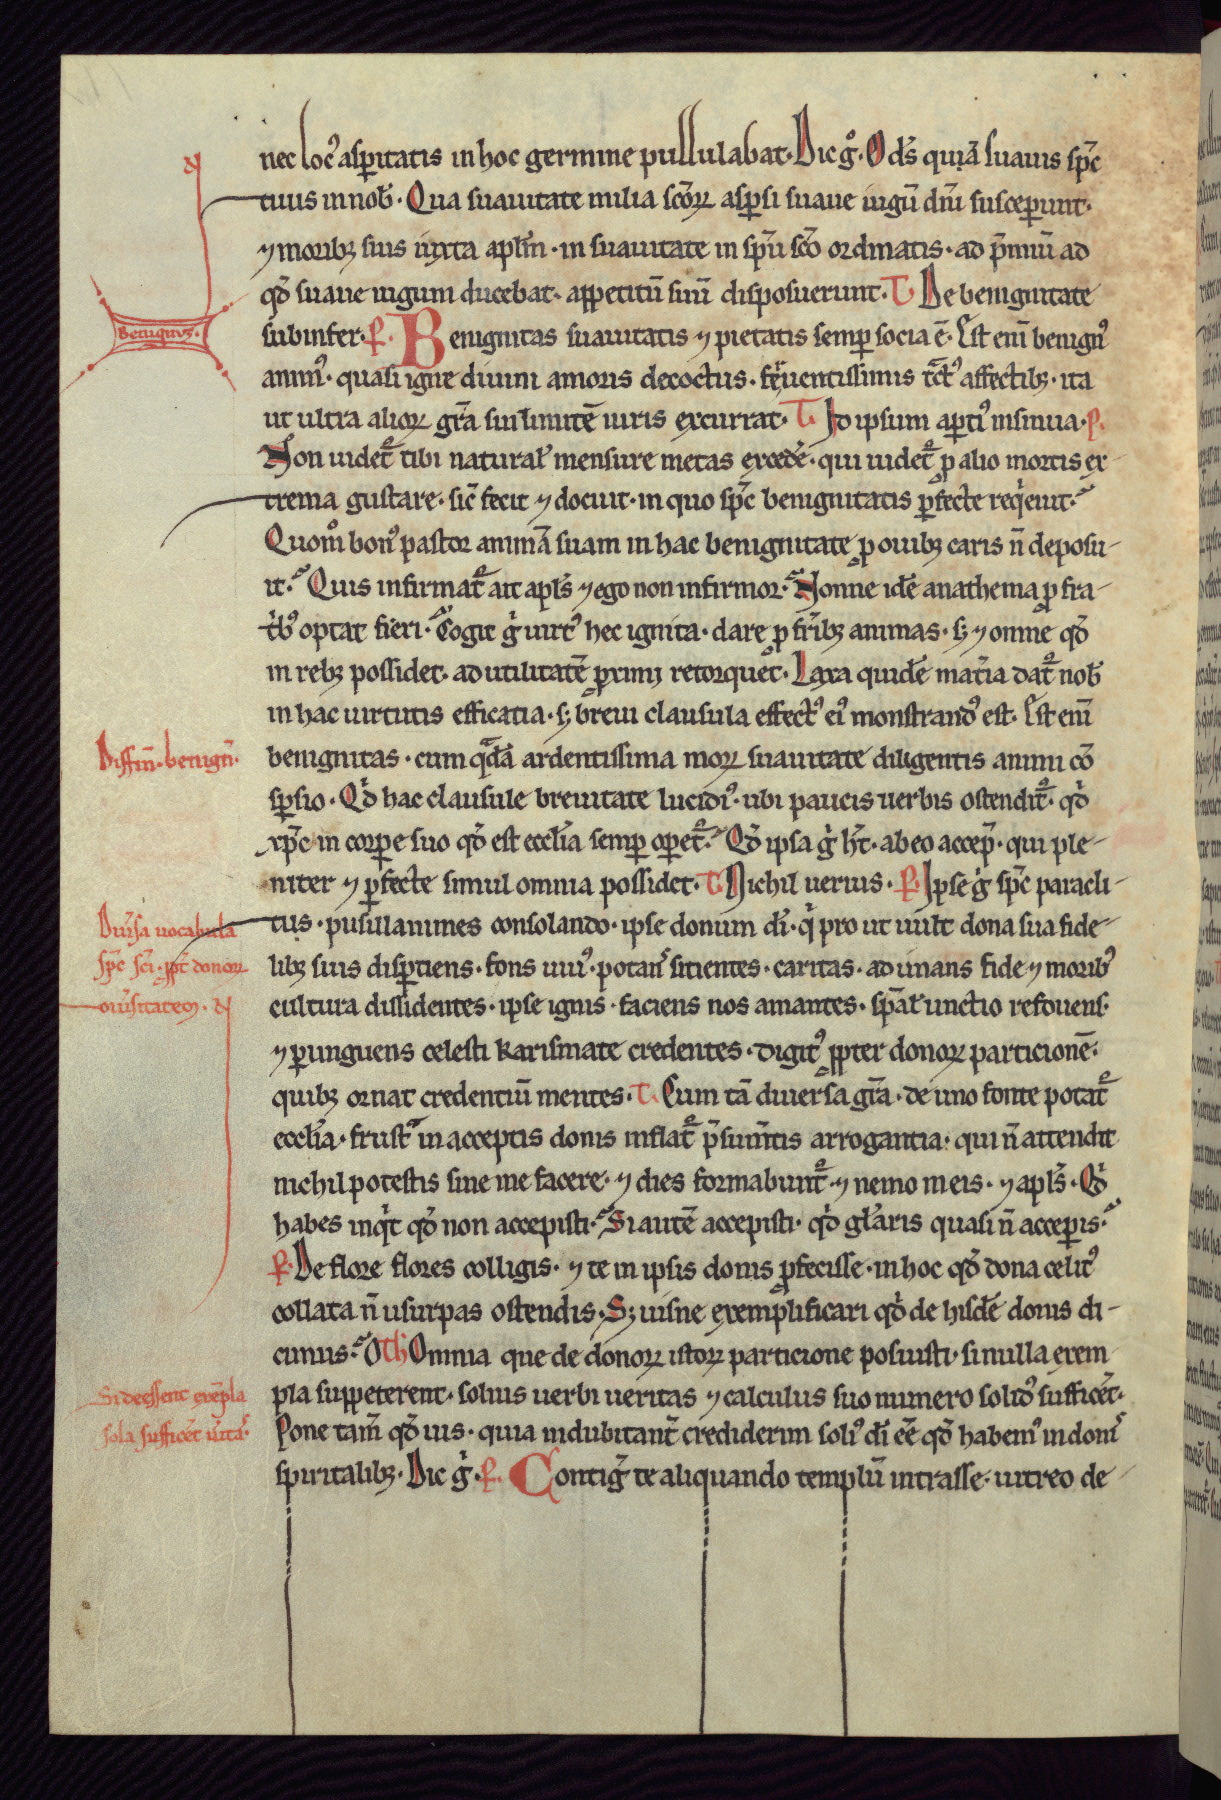 nec locꝰ asp̱itatis in hoc germine pullulabat. Dic gͦ. O ds̄ quā suauis sp̄c
tuus in nob̄. Qua suauitate milia sc̄oꝝ asp̱si suaue iugū dn̄i suscep̱unt.
⁊ moribꝫ suis iuxta apl̄m. in suauitate in sp̄u sc̄o ordinatis. ad p̄miū ad
qd̄ suaue iugum ducebat. appetitū suū disposuerunt. T. De benignitate
subinfer. P. Benignitas suauitatis ⁊ pietatis semp̱ socia ē. Est enī benignꝰ
animꝰ. quasi igne diuini amoris decoctus. feruentissimis affectibꝫ. ita
ut ultra alioꝝ gr̄a sui limitē iuris excurrat. T. Id ipsum ap̱tiꝰ insinua. P.
Non uidet᷑ tibi natural̄ mensure metas excede᷑. qui uidet᷑ p alio mortis ex
trema gustare. sic̄ fecit ⁊ docuit. in quo sp̄c benignitatis p̱fecte reqͥeuit.
Quom̊ bonꝰ pastor animā suam in hac benignitate ꝓ ouibꝫ caris n̄ deposu-
it. Quis infirmat᷑ ait apl̄s ⁊ ego non infirmor. Nonne idē anathema ꝓ fra-
tͥbꝰ optat fieri. Cogit gͥ uirtꝰ hec ignita. dare ꝓ fr̄ibꝫ animas. sꝫ ⁊ omne qd̄
in rebꝫ possidet. ad utilitatē ꝓximi retorquet. Laxa quidē mat̄ia dat᷑ nob̄
in hac uirtutis efficatia. sꝫ breui clausula effectꝰ eiꝰ monstrandꝰ est. Est enī
benignitas. cum qᵃdā ardentissima moꝝ suauitate diligentis animi cō
sp̱sio. Qd̄ hac clausule breuitate lucidiꝰ. ubi paucis uerbis ostendit᷑. qd̄
xp̄c in corp̱e suo qd̄ est eccl̄ia semp̱ op̱et᷑. Qd̄ ipsa gͥ ht̄. ab eo accep̱. qui ple-
niter ⁊ p̱fecte simul omnia possidet. T. Nichil uerius. P. Ipse gͥ sp̄c paracli-
tus. pusulanimes consolando. ipse donum dī. qͥ pro ut uult dona sua fide-
libꝫ suis disp̱tiens. fons uiuꝰ. potans sitientes. caritas. adunans fide ⁊ moribꝰ
cultura dissidentes. ipse ignis. faciens nos amantes. sp̄al̄ unctio refouens.
⁊ p̱unguens celesti karismate credentes. digitꝰ ꝓpter donoꝝ particionē.
quibꝫ ornat credentiū mentes. T. Cum tā diuersa gr̄a. de uno fonte potat᷑
eccl̄ia. frustᵃ in acceptis donis inflat᷑ p̄sum̄tis arrogantia. qui n̄ attendit
nichil potestis sine me facere. ⁊ dies formabunt᷑ ⁊ nemo in eis. ⁊ apl̄s. Qd̄
habes inqͥt qd̄ non accepisti. Si autē accepisti. qd̄ gl̄aris quasi n̄ accep̱is.
P. De flore flores colligis. ⁊ te in ipsis donis ꝓfecisse. in hoc qd̄ dona celitꝰ
collata n̄ usurpas ostendis. Sꝫ uisne exemplificari qd̄ de hisdē donis di-
cimus. Th. Omnia que de donoꝝ istoꝝ particione posuisti. si nulla exem
pla suppeterent. solius uerbi ueritas ⁊ calculus suo numero solidꝰ sufficēt.
Pone tam̄ qd̄ uis. quia indubitant̄ crediderim soliꝰ dī eē qd̄ habemꝰ in donis
spiritalibꝫ. Dic gͥ. P. Contigͥ te aliquando templū intrasse. uitreo de-
Benignus.
Diffin̄. benign̄.
Diūsa uocabula
sp̄c sc̄i. ꝓpt̄ donoꝝ
diūsitatem.
Si deessent exēpla
sola sufficēt ūitas.